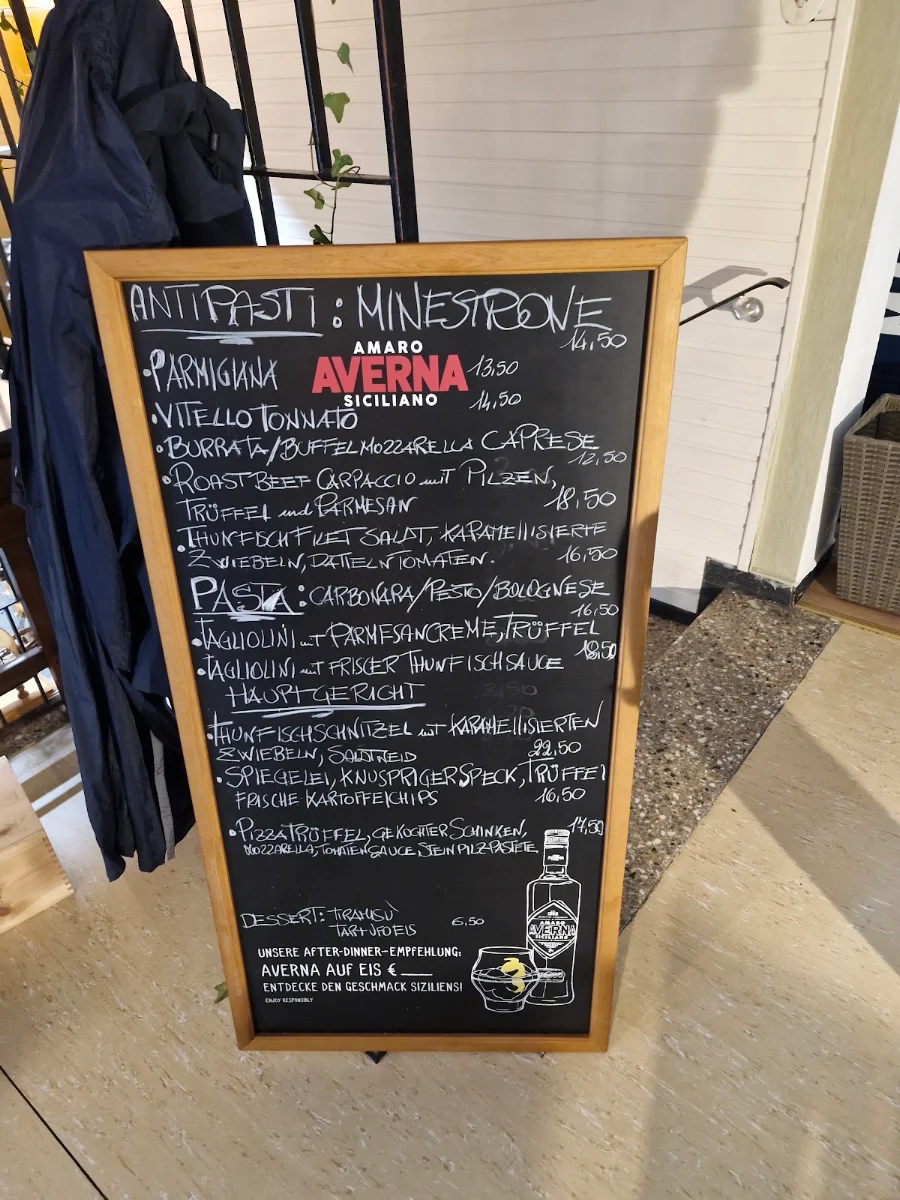 ANTIPASTI: MINESTRONE
14,50
AMARO
•PARMIGIANA AVERNA 13,50
SICILIANO
•VITELLO TONNATO 14,50
•BURRATA/BUFFELMOZZARELLA CAPRESE
12,50
•ROAST BEEF CARPACCIO mit PILZEN,
TRÜFFEL und PARMESAN 18,50
•THUNFISCHFILET SALAT, KARAMELLISIERTE
ZWIEBELN, DATTELNTOMATEN. 16,50
PASTA: CARBONARA/PESTO/BOLOGNESE
16,50
•TAGLIOLINI mit PARMESANCREME, TRÜFFEL
18,50
•TAGLIOLINI mit FRISCER THUNFISCHSAUCE
HAUPTGERICHT
•THUNFISCHSCHNITZEL mit KARAMELLISIERTEN
ZWIEBELN, 22,50
•SPIEGELEI, KNUSPRIGER SPECK, TRÜFFEL
FRISCHE KARTOFFELCHIPS 16,50
•PIZZA TRÜFFEL, GEKOCHTER SCHINKEN, 17,50
MOZZARELLA, TOMATENSAUCE, STEINPILZPASTETE
DESSERT: TIRAMISÙ 6,50
TARTUFOEIS
AMARO
AVERNA
SICILIANO
UNSERE AFTER-DINNER-EMPFEHLUNG:
AVERNA AUF EIS €____
ENTDECKE DEN GESCHMACK SIZILIENS!
ENJOY RESPONSIBLY